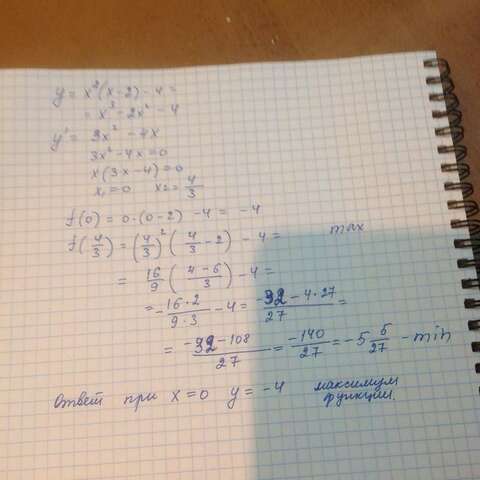 y = x²(x-2) - 4 =
= x³ - 2x² - 4
y' = 3x² - 4x
3x² - 4x = 0
x(3x - 4) = 0
x₁ = 0 x₂ = 4/3
f(0) = 0·(0-2) - 4 = -4
f(4/3) = (4/3)²(4/3 - 2) - 4 = max
= 16/9 (4-6/3) - 4 =
= -16·2/9·3 - 4 = -32-4·27/27 =
= -32-108/27 = -140/27 = -5 5/27 - min
Ответ при x = 0 y = -4 максимум
функции.